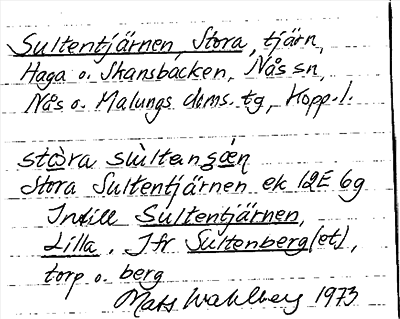 Sultentjärnen, Stora, tjärn,
Haga o. Skansbacken, Nås sn,
Nås o. Malungs doms. tg, Kopp. l.
stora sultanʒǽn
Stora Sultentjärnen ek 12E 6g
Intill Sultentjärnen,
Lilla. Jfr Sultenberg(et),
torp o. berg
Mats Wahlberg 1973